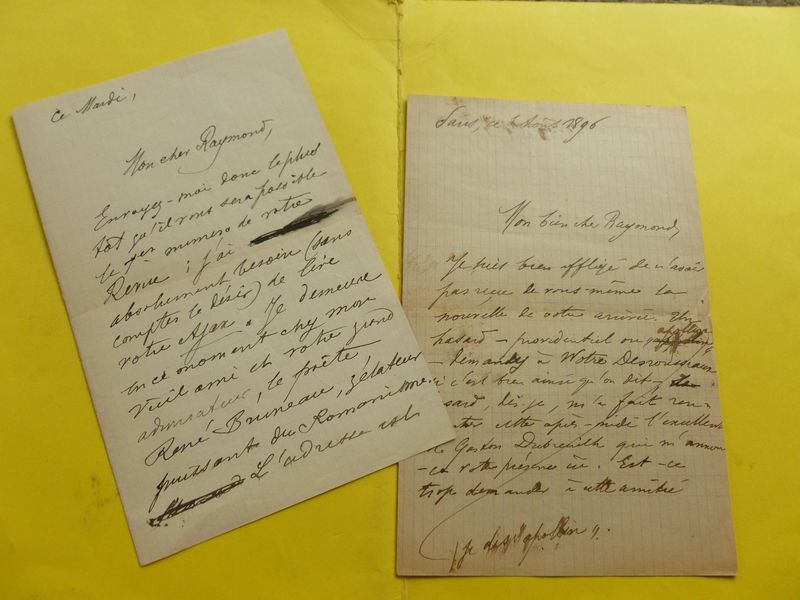 Ce Mardi,
Mon cher Raymond,
Envoyez-moi donc le plus
tôt qu'il vous sera possible
le 1er numéro de votre
Revue ; j'ai
absolument besoin (sans
compter le désir) de lire
votre Ajax. Je demeure
en ce moment chez mon
vieil ami et votre grand
admirateur, le poète
René Bruneau, zélateur
puissant du Romanisme.
L'adresse est
Paris, ce Août 1896
Mon bien cher Raymond,
Je suis bien affligé de n'avoir
pas reçu de vous-même la
nouvelle de votre arrivée. Un
hasard - providentiel ou
- demandez à Notre Desrousseaux
si c'est bien ainsi qu'on dit -
hasard, dis-je, m'a fait ren-
cette après-midi l'excellent
Gaston Dubreuilh qui m'annon-
ce votre présence ici. Est-ce
trop demander à cette amitié